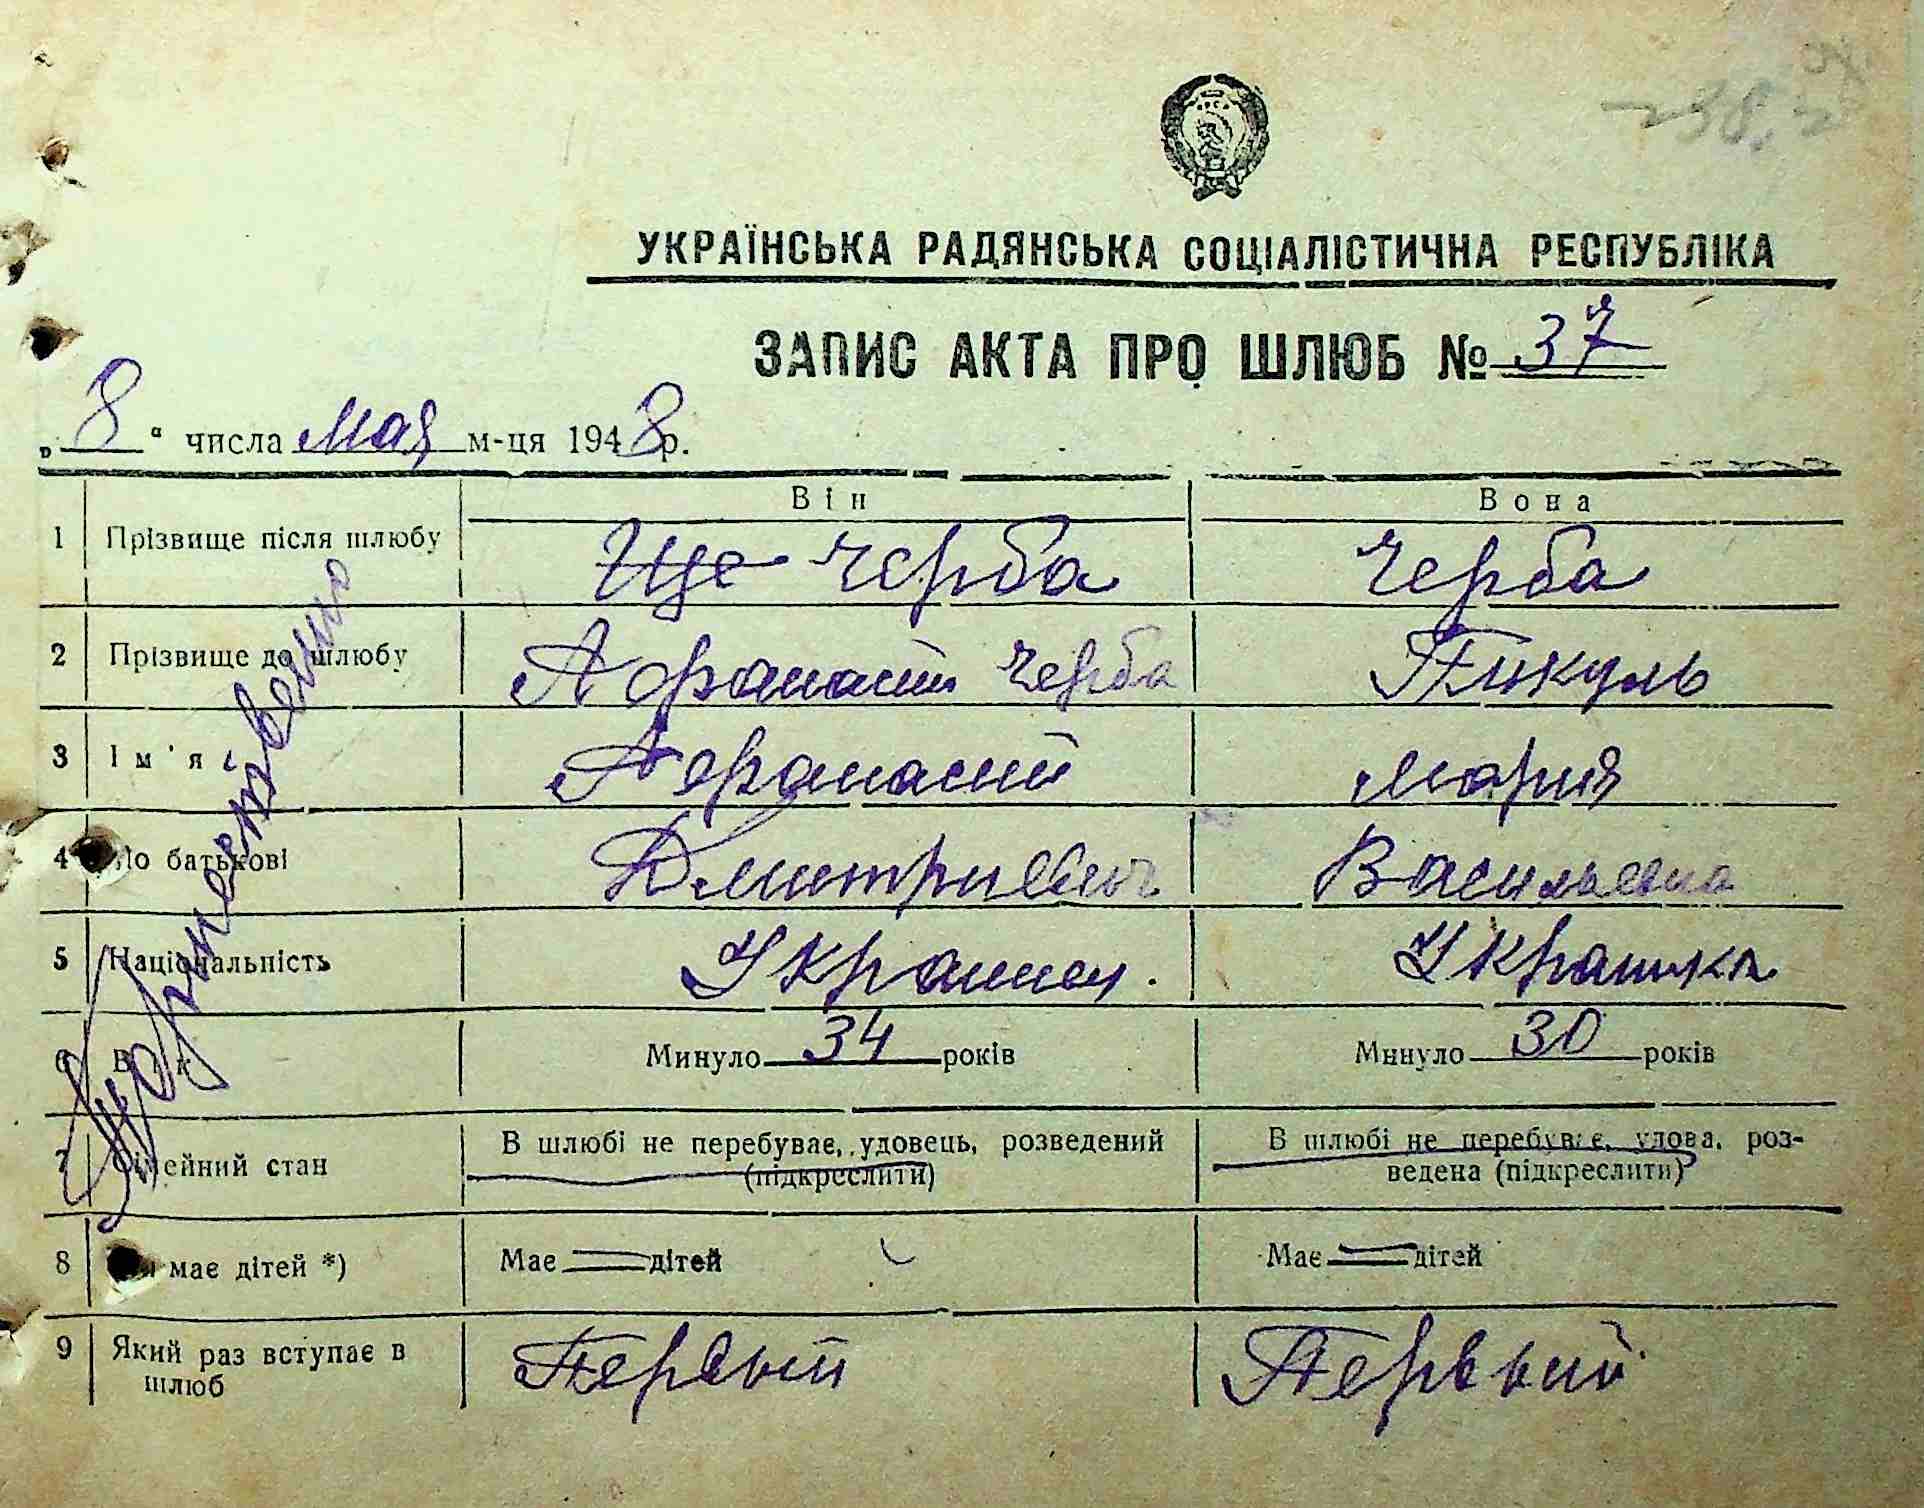 УКРАЇНСЬКА РАДЯНСЬКА СОЦІАЛІСТИЧНА РЕСПУБЛІКА
ЗАПИС АКТА ПРО ШЛЮБ № 37
„ 8 “ числа Мая м-ця 1948 р.
Він Вона
1 Прізвище після шлюбу Ще Черба Черба
2 Прізвище до шлюбу Афанасий Черба Пикуль
3 Ім'я Афанасий Мария
4 По батькові Дмитриевич Васильевна
5 Національність Украинец. Украинка
6 Вік Минуло 34 років Минуло 30 років
7 Сімейний стан В шлюбі не перебуває, удовець, розведений (підкреслити) В шлюбі не перебуває, удова, роз-
ведена (підкреслити)
8 має дітей *) Має дітей Має дітей
9 Який раз вступає в Первый Первый
шлюб